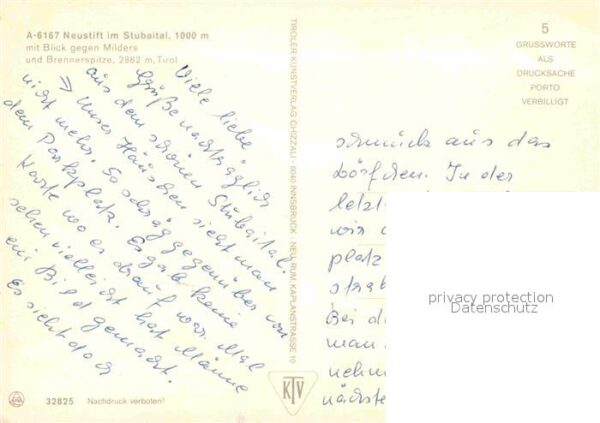 A-6167 Neustift im Stubaital, 1000 m
mit Blick gegen Milders
und Brennerspitze, 2882 m, Tirol
Viele liebe
Grüße nachträglich
aus dem schönen Stubaital.
Unser Häuschen sieht man
nicht mehr. So schräg gegenüber von
dem Parkplatz. Es gab keine
Karte wo es drauf war. Mal
sehen vielleicht hat Männe
ein Bild gemacht.
Es sieht doch
TIROLER KUNSTVERLAG CHIZZALI · 6040 INNSBRUCK NEU-RUM, KAPLANSTRASSE 10
KTV
32825 Nachdruck verboten!
5
GRUSSWORTE
ALS
DRUCKSACHE
PORTO
VERBILLIGT
schmuck aus das
Dörfchen. In der
letzt
wir
platz
Bei di
man
nehm
nächste
privacy protection
Datenschutz